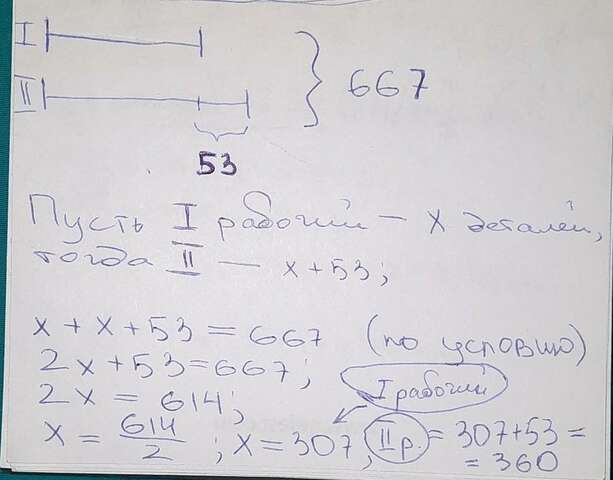 I
667
II
53
Пусть I рабочий — x деталей,
тогда II — x+53;
x + x + 53 = 667 (по условию)
2x + 53 = 667;
2x = 614;
I рабочий
x = 614/2 ; x = 307, II р. = 307+53 =
= 360